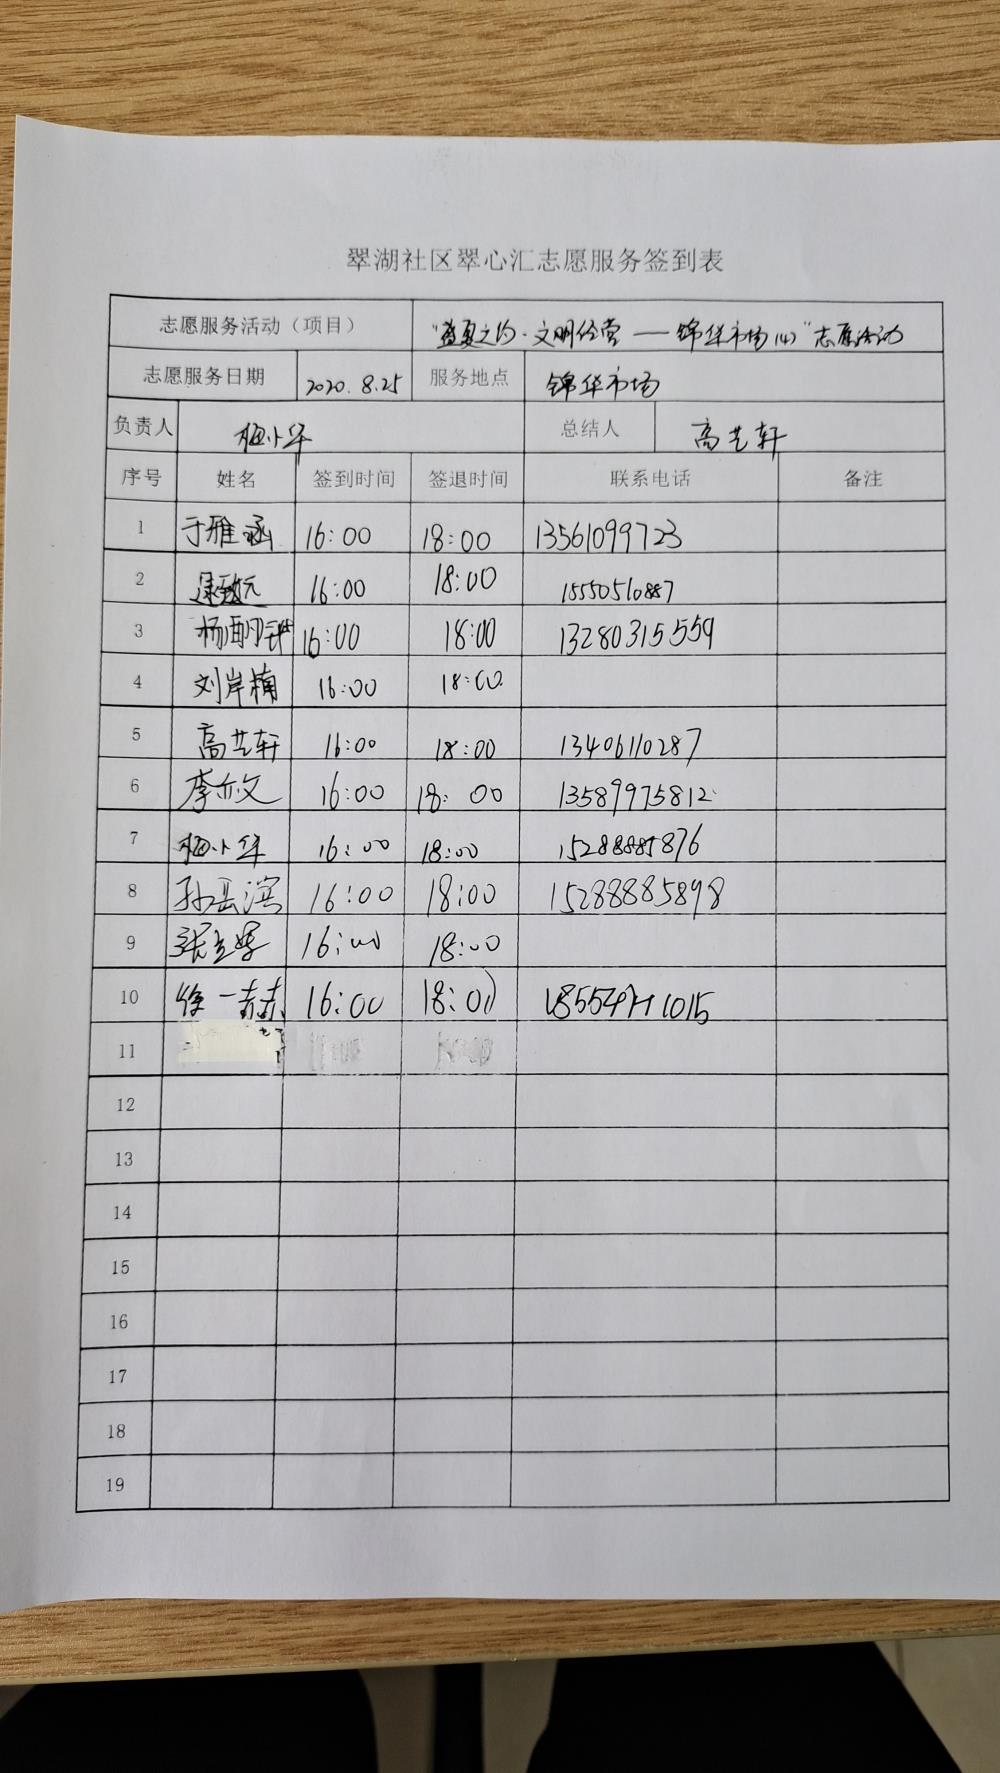 翠湖社区翠心汇志愿服务签到表
志愿服务活动（项目） "盛夏之约·文明经营——锦华市场(4)"志愿活动
志愿服务日期 2020.8.25 服务地点 锦华市场
负责人 梅小华 总结人 高艺轩
序号 姓名 签到时间 签退时间 联系电话 备注
1 于雅涵 16:00 18:00 13561099723
2 16:00 18:00 15550510887
3 杨 16:00 18:00 13280315559
4 刘岸楠 16:00 18:00
5 高艺轩 16:00 18:00 13406110287
6 李亦文 16:00 18:00 13589975812
7 梅小华 16:00 18:00 15288885876
8 孙岳滨 16:00 18:00 15288885898
9 张 16:00 18:00
10 徐一 16:00 18:00
11
12
13
14
15
16
17
18
19